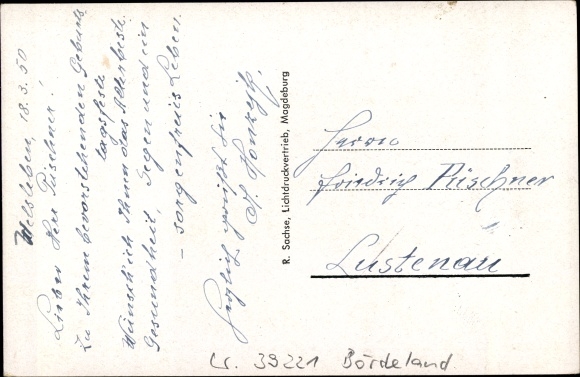 Welsleben, 18.3.50
Lieber Herr Püschner!
Zu Ihrem bevorstehenden Geburts
tagsfeste
wünsch ich Ihnen das Allerbeste
Gesundheit, Segen und ein
- sorgenfreies Leben.
Herzlich grüßt Sie
R. Sachse, Lichtdruckvertrieb, Magdeburg
Herrn
Friedrich Püschner
Lustenau
Cr. 39221 Bördeland